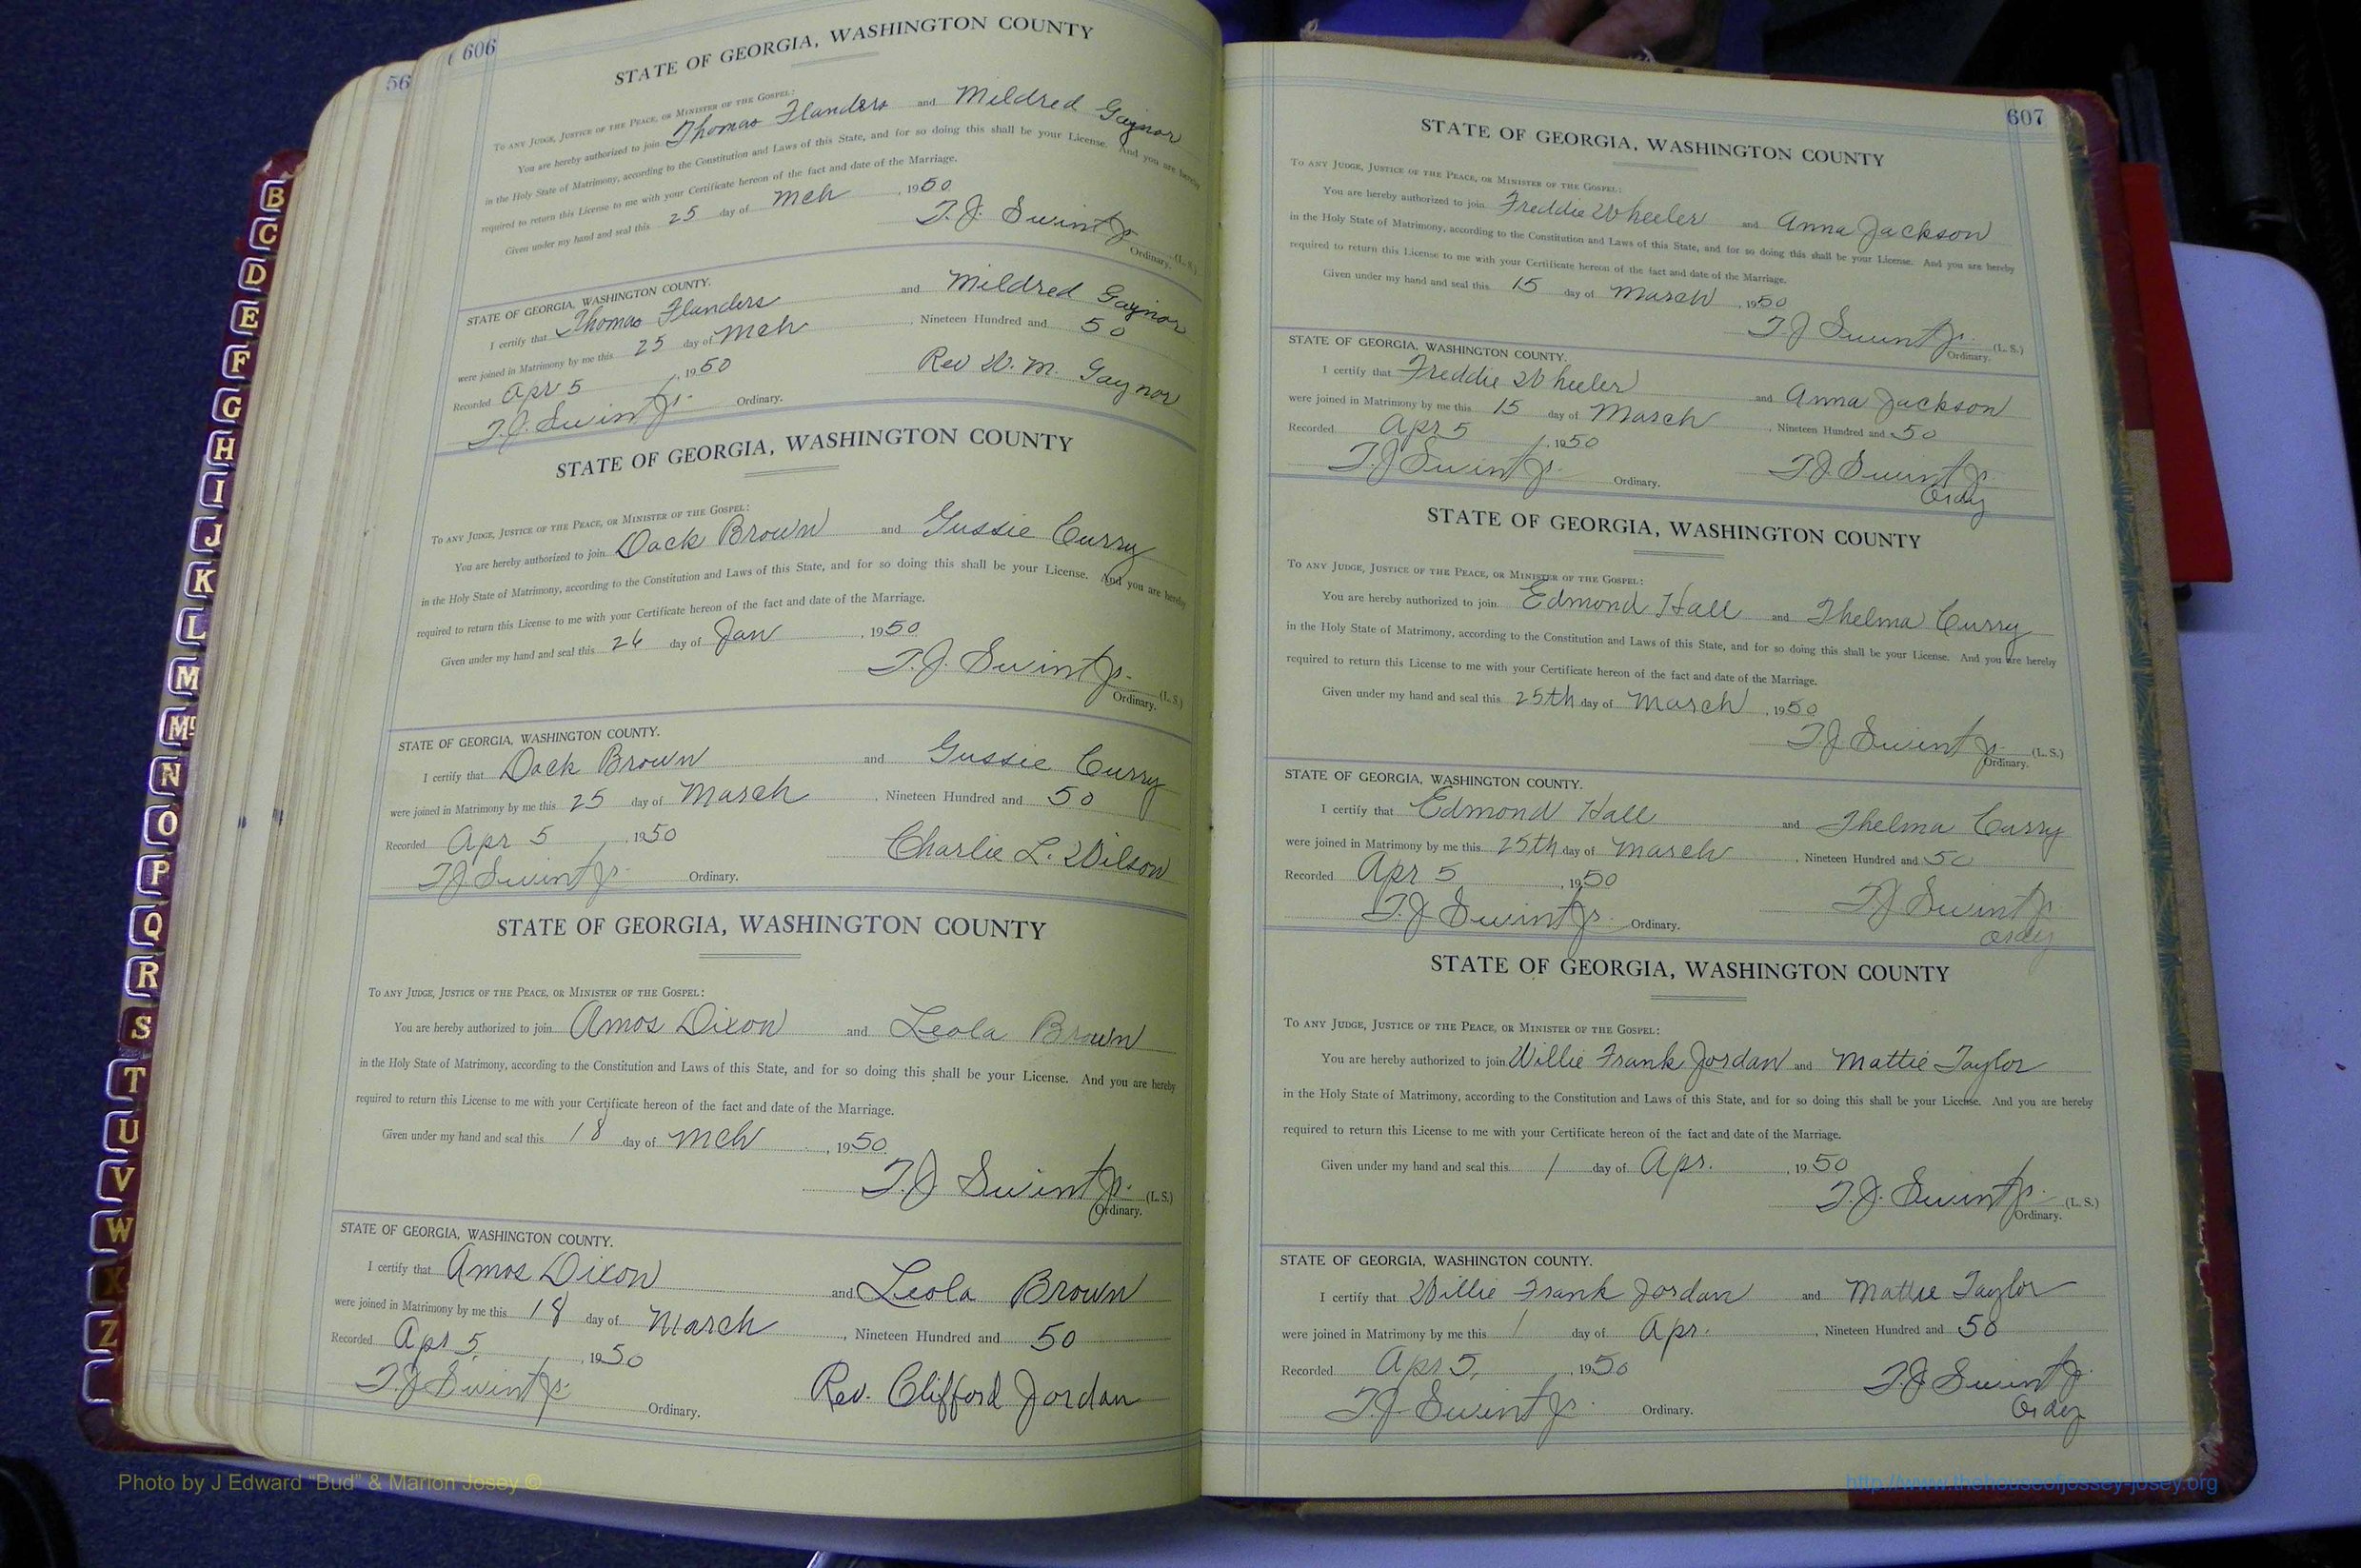 606
STATE OF GEORGIA, WASHINGTON COUNTY
TO ANY JUDGE, JUSTICE OF THE PEACE, OR MINISTER OF THE GOSPEL:
You are hereby authorized to join Thomas Flanders and Mildred Gaynor
in the Holy State of Matrimony, according to the Constitution and Laws of this State, and for so doing this shall be your License. And you are hereby
required to return this License to me with your Certificate hereon of the fact and date of the Marriage.
Given under my hand and seal this 25 day of Mch, 1950
T. J. Swint Jr. (L. S.)
Ordinary.
STATE OF GEORGIA, WASHINGTON COUNTY.
I certify that Thomas Flanders and Mildred Gaynor
were joined in Matrimony by me this 25 day of Mch, Nineteen Hundred and 50
Recorded Apr 5, 1950 Rev W. M. Gaynor
T. J. Swint Jr. Ordinary.
STATE OF GEORGIA, WASHINGTON COUNTY
TO ANY JUDGE, JUSTICE OF THE PEACE, OR MINISTER OF THE GOSPEL:
You are hereby authorized to join Dock Brown and Gussie Curry
in the Holy State of Matrimony, according to the Constitution and Laws of this State, and for so doing this shall be your License. And you are hereby
required to return this License to me with your Certificate hereon of the fact and date of the Marriage.
Given under my hand and seal this 26 day of Jan, 1950
T. J. Swint Jr. (L. S.)
Ordinary.
STATE OF GEORGIA, WASHINGTON COUNTY.
I certify that Dock Brown and Gussie Curry
were joined in Matrimony by me this 25 day of March, Nineteen Hundred and 50
Recorded Apr 5, 1950 Charlie L. Wilson
T J Swint Jr. Ordinary.
STATE OF GEORGIA, WASHINGTON COUNTY
TO ANY JUDGE, JUSTICE OF THE PEACE, OR MINISTER OF THE GOSPEL:
You are hereby authorized to join Amos Dixon and Leola Brown
in the Holy State of Matrimony, according to the Constitution and Laws of this State, and for so doing this shall be your License. And you are hereby
required to return this License to me with your Certificate hereon of the fact and date of the Marriage.
Given under my hand and seal this 18 day of Mch, 1950
T. J. Swint Jr. (L. S.)
Ordinary.
STATE OF GEORGIA, WASHINGTON COUNTY.
I certify that Amos Dixon and Leola Brown
were joined in Matrimony by me this 18 day of March, Nineteen Hundred and 50
Recorded Apr 5, 1950
T J Swint Jr. Ordinary. Rev. Clifford Jordan
607
STATE OF GEORGIA, WASHINGTON COUNTY
TO ANY JUDGE, JUSTICE OF THE PEACE, OR MINISTER OF THE GOSPEL:
You are hereby authorized to join Freddie Wheeler and Anna Jackson
in the Holy State of Matrimony, according to the Constitution and Laws of this State, and for so doing this shall be your License. And you are hereby
required to return this License to me with your Certificate hereon of the fact and date of the Marriage.
Given under my hand and seal this 15 day of March, 1950
T. J Swint Jr. (L. S.)
Ordinary.
STATE OF GEORGIA, WASHINGTON COUNTY.
I certify that Freddie Wheeler and Anna Jackson
were joined in Matrimony by me this 15 day of March, Nineteen Hundred and 50
Recorded Apr 5, 1950
T. J Swint Jr. Ordinary. T J Swint Jr.
Ordy
STATE OF GEORGIA, WASHINGTON COUNTY
TO ANY JUDGE, JUSTICE OF THE PEACE, OR MINISTER OF THE GOSPEL:
You are hereby authorized to join Edmond Hall and Thelma Curry
in the Holy State of Matrimony, according to the Constitution and Laws of this State, and for so doing this shall be your License. And you are hereby
required to return this License to me with your Certificate hereon of the fact and date of the Marriage.
Given under my hand and seal this 25th day of March, 1950
T J Swint Jr. (L. S.)
Ordinary.
STATE OF GEORGIA, WASHINGTON COUNTY.
I certify that Edmond Hall and Thelma Curry
were joined in Matrimony by me this 25th day of March, Nineteen Hundred and 50
Recorded Apr 5, 1950
T. J Swint Jr. Ordinary. T J Swint Jr.
Ordy
STATE OF GEORGIA, WASHINGTON COUNTY
TO ANY JUDGE, JUSTICE OF THE PEACE, OR MINISTER OF THE GOSPEL:
You are hereby authorized to join Willie Frank Jordan and Mattie Taylor
in the Holy State of Matrimony, according to the Constitution and Laws of this State, and for so doing this shall be your License. And you are hereby
required to return this License to me with your Certificate hereon of the fact and date of the Marriage.
Given under my hand and seal this 1 day of Apr., 1950
T. J. Swint Jr. (L. S.)
Ordinary.
STATE OF GEORGIA, WASHINGTON COUNTY.
I certify that Willie Frank Jordan and Mattie Taylor
were joined in Matrimony by me this 1 day of Apr., Nineteen Hundred and 50
Recorded Apr 5, 1950 T J Swint Jr.
T. J. Swint Jr. Ordinary. Ordy
56
B
C
D
E
F
G
H
I
J
K
L
M
Mc
N
O
P
Q
R
S
T
U
V
W
X
Z
Photo by J Edward "Bud" & Marion Josey ©
http://www.thehouseofjossey-josey.org